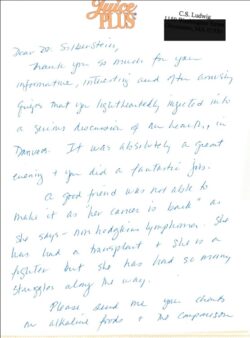 Juice
PLUS+
C.S. Ludwig
Dear Dr. Silberstein,
Thank you so much for your
informative, interesting and often amusing
quips that you lightheartedly injected into
a serious discussion of our health, in
Danvers. It was absolutely a great
evening & you did a fantastic job.
A good friend was not able to
make it as "her cancer is back" as
she says - non hodgkins lymphoma. She
has had a transplant & she is a
fighter but she has had so many
struggles along the way.
Please send me your charts
on alkaline foods & the comparison